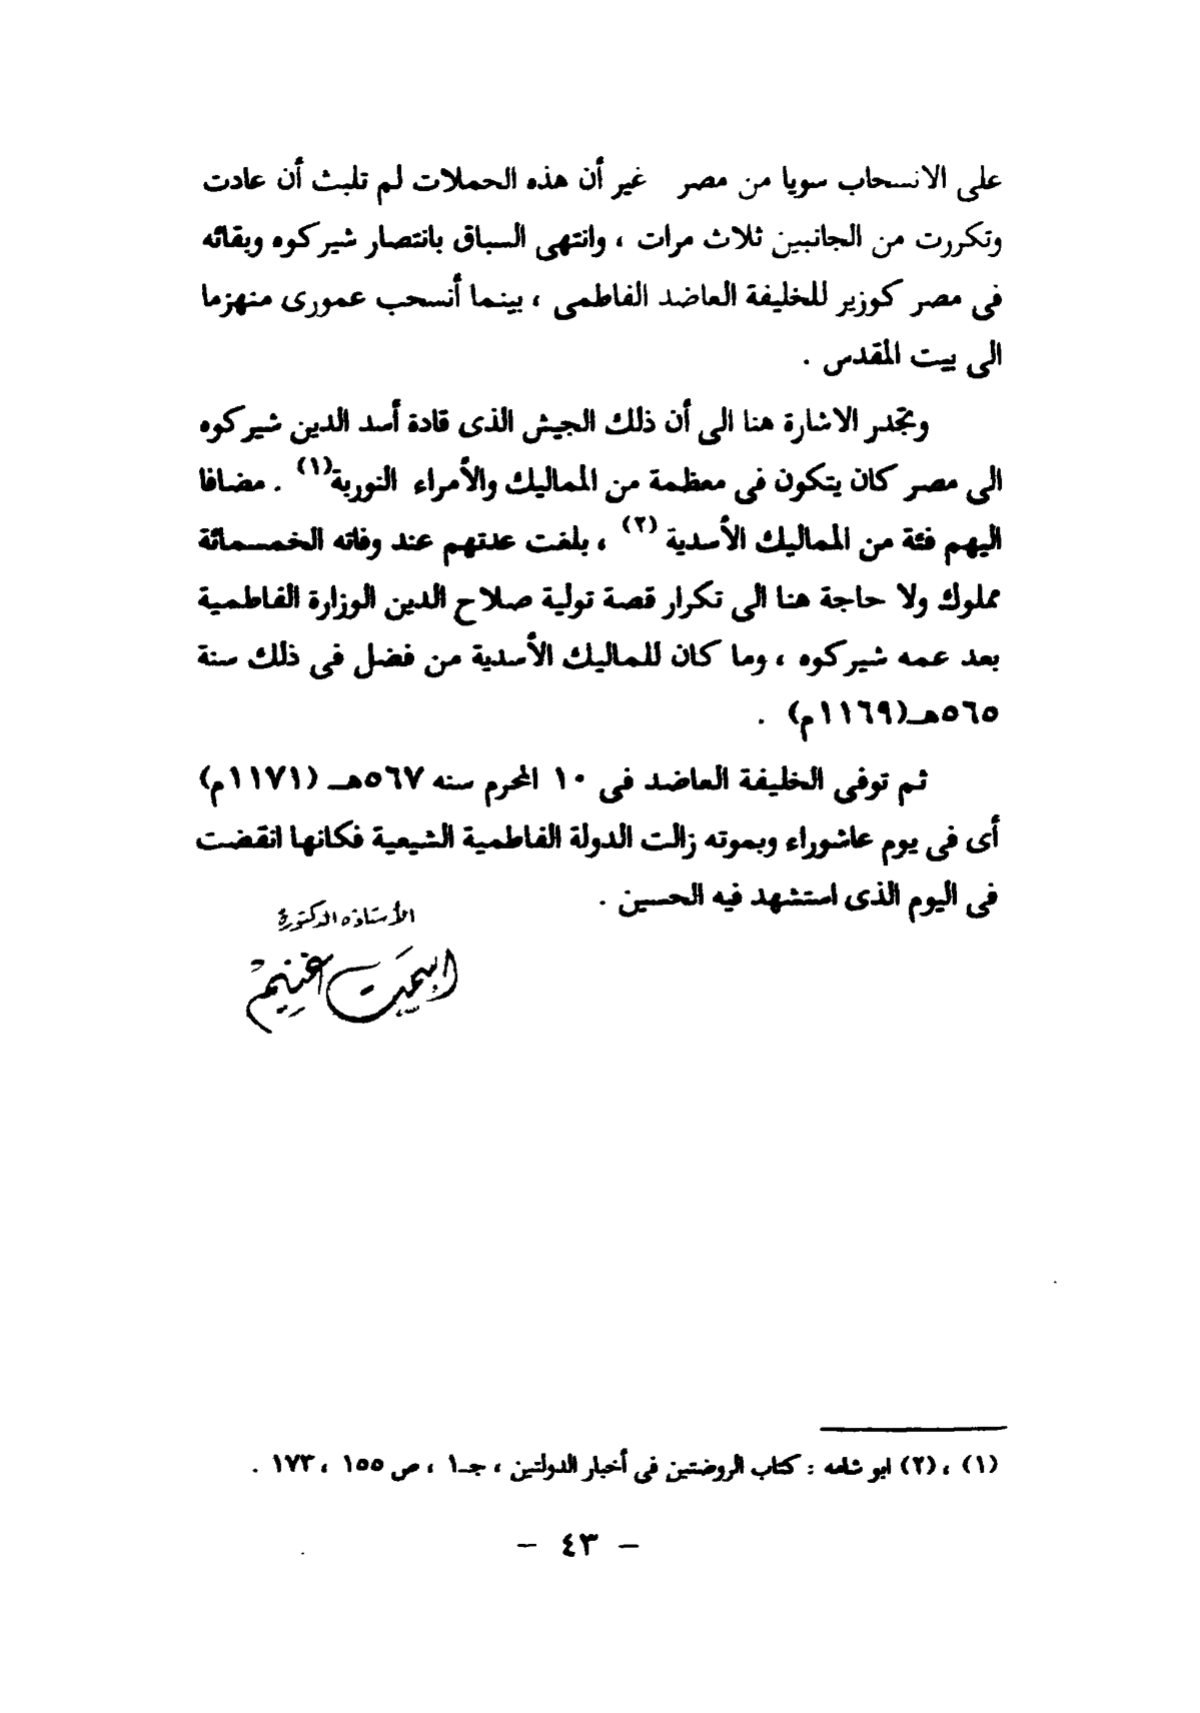 على الانسحاب سويا من مصر غير أن هذه الحملات لم تلبث أن عادت
وتكررت من الجانبين ثلاث مرات ، وانتهى السباق بانتصار شيركوه وبقائه
فى مصر كوزير للخليفة العاضد الفاطمى ، بينما أنسحب عمورى منهزما
الى بيت المقدس .
وتجدر الاشارة هنا الى أن ذلك الجيش الذى قادة أسد الدين شيركوه
الى مصر كان يتكون فى معظمة من المماليك والأمراء النورية(١) . مضافا
اليهم فئة من المماليك الأسدية (٢) ، بلغت عدتهم عند وفاته الخمسمائة
مملوك ولا حاجة هنا الى تكرار قصة تولية صلاح الدين الوزارة الفاطمية
بعد عمه شيركوه ، وما كان للماليك الأسدية من فضل فى ذلك سنة
٥٦٥هـ(١١٦٩م) .
ثم توفى الخليفة العاضد فى ١٠ المحرم سنه ٥٦٧هـ (١١٧١م)
أى فى يوم عاشوراء وبموته زالت الدولة الفاطمية الشيعية فكانها انقضت
فى اليوم الذى استشهد فيه الحسين .
الأستاذه الدكتورة
اسمت غنيم
(١) ، (٢) ابو شامه : كتاب الروضتين فى أخبار الدولتين ، جـ١ ، ص ١٥٥ ، ١٧٣ .
– ٤٣ –